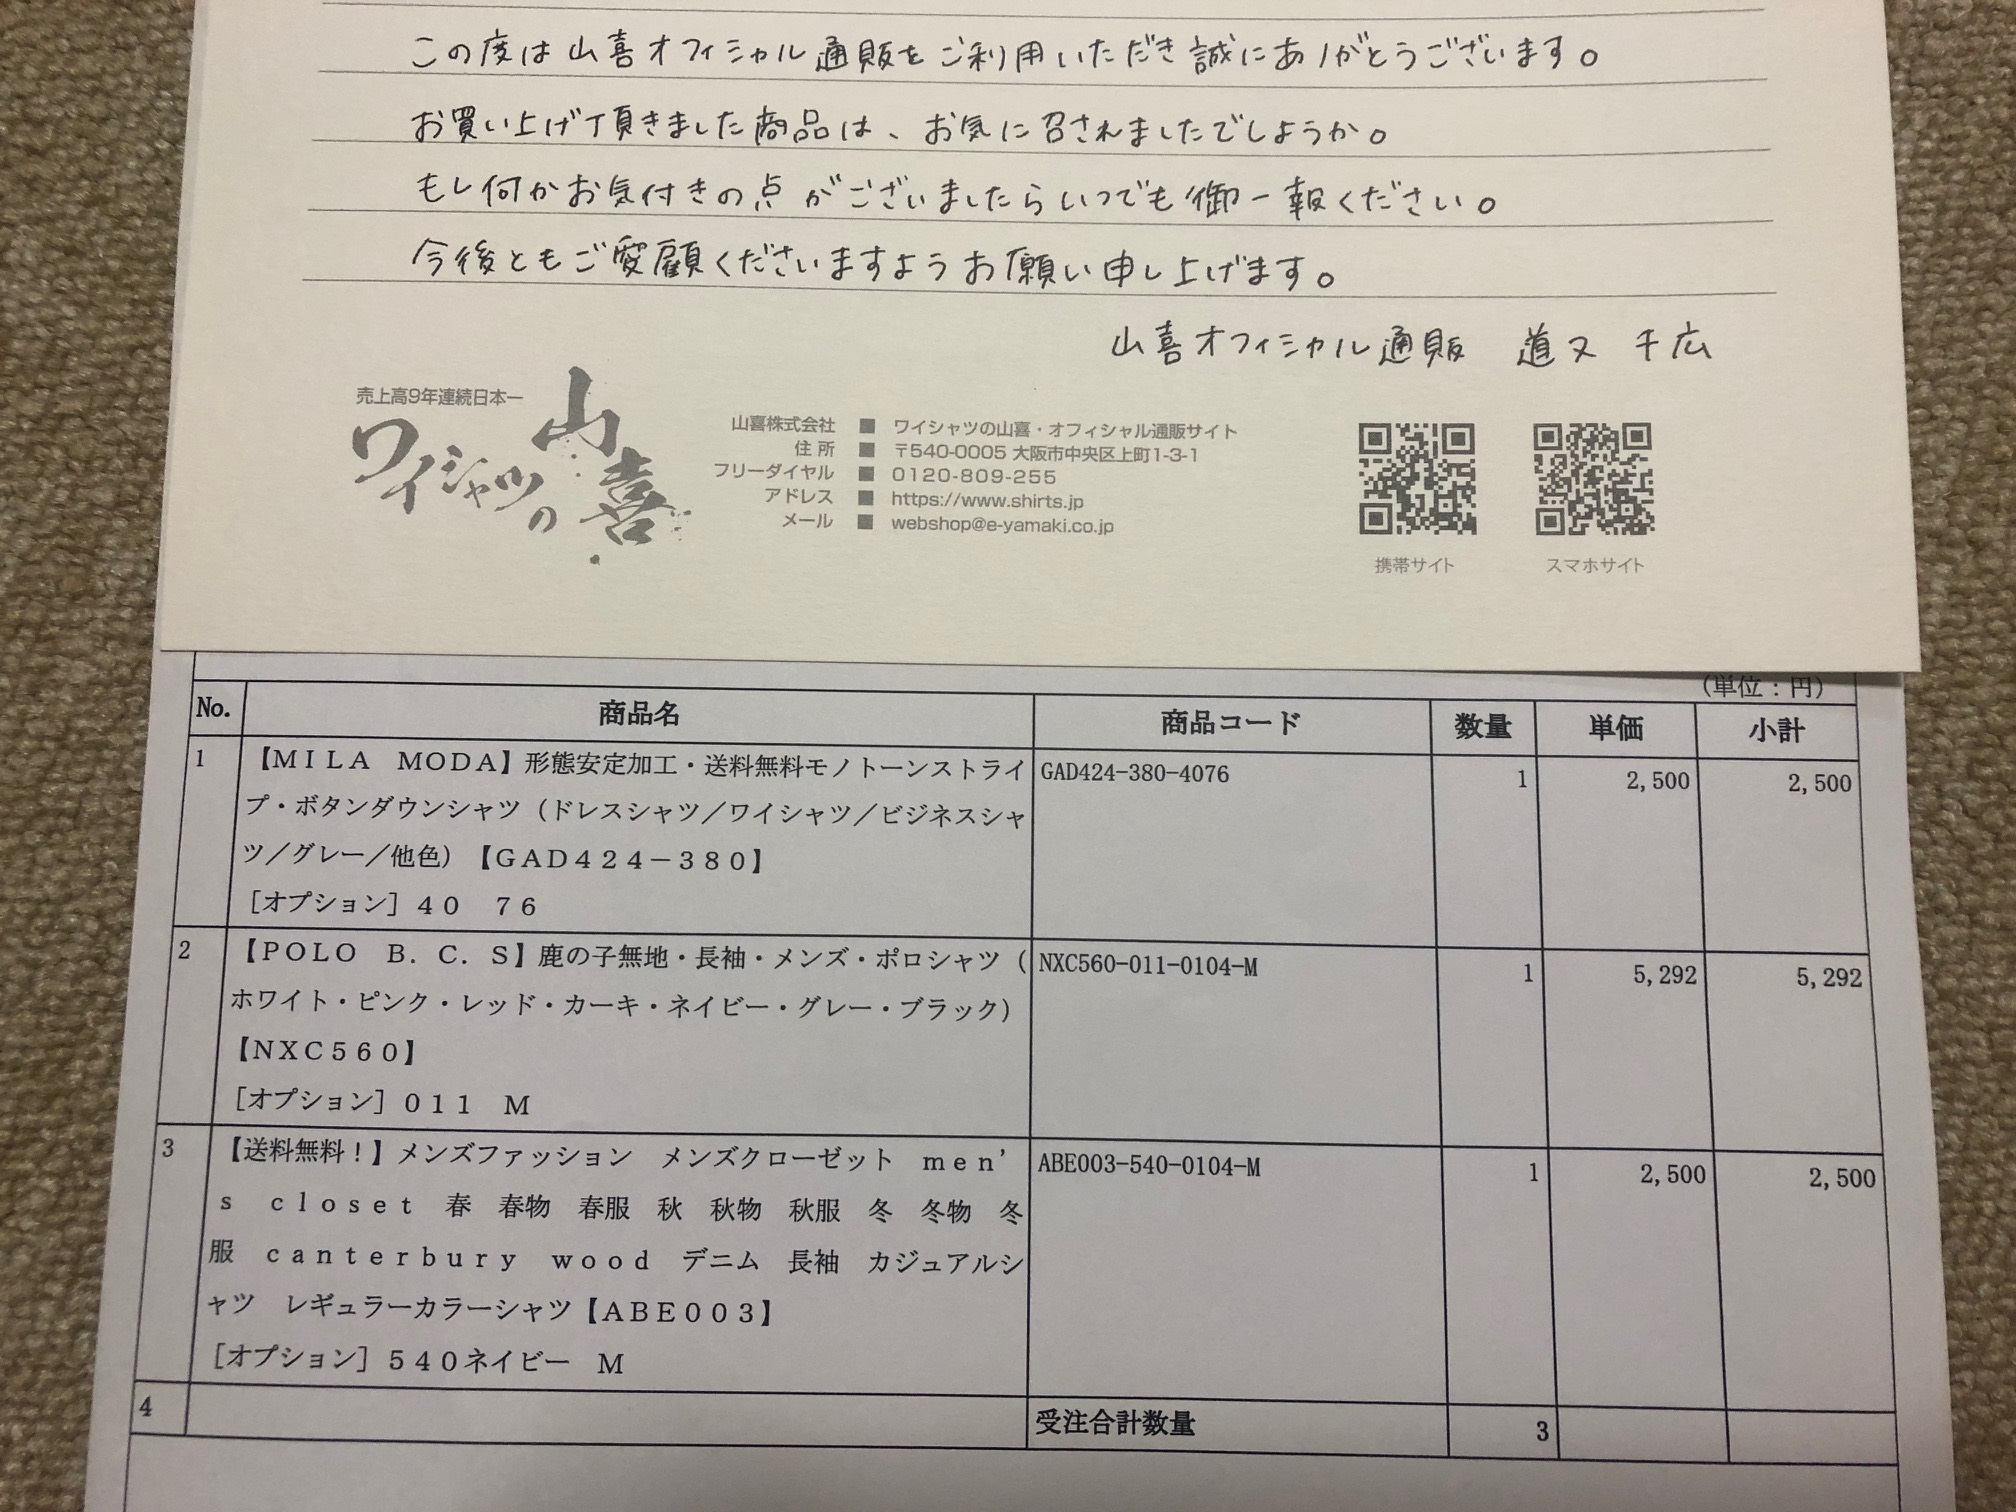 この度は山喜オフィシャル通販をご利用いただき誠にありがとうございます。
お買い上げ頂きました商品は、お気に召されましたでしょうか。
もし何かお気付きの点がございましたらいつでも御一報ください。
今後ともご愛顧くださいますようお願い申し上げます。
山喜オフィシャル通販　道又 千広
売上高9年連続日本一
ワイシャツの山喜
山喜株式会社 ■ ワイシャツの山喜・オフィシャル通販サイト
住所 ■ 〒540-0005 大阪市中央区上町1-3-1
フリーダイヤル ■ 0120-809-255
アドレス ■ https://www.shirts.jp
メール ■ webshop@e-yamaki.co.jp
携帯サイト スマホサイト
（単位：円）
No. 商品名 商品コード 数量 単価 小計
1 【ＭＩＬＡ　ＭＯＤＡ】形態安定加工・送料無料モノトーンストライ GAD424-380-4076 1 2,500 2,500
プ・ボタンダウンシャツ（ドレスシャツ／ワイシャツ／ビジネスシャ
ツ／グレー／他色）【ＧＡＤ４２４－３８０】
［オプション］４０　７６
2 【ＰＯＬＯ　Ｂ．Ｃ．Ｓ】鹿の子無地・長袖・メンズ・ポロシャツ（ NXC560-011-0104-M 1 5,292 5,292
ホワイト・ピンク・レッド・カーキ・ネイビー・グレー・ブラック）
【ＮＸＣ５６０】
［オプション］０１１　Ｍ
3 【送料無料！】メンズファッション　メンズクローゼット　ｍｅｎ’ ABE003-540-0104-M 1 2,500 2,500
ｓ　ｃｌｏｓｅｔ　春　春物　春服　秋　秋物　秋服　冬　冬物　冬
服　ｃａｎｔｅｒｂｕｒｙ　ｗｏｏｄ　デニム　長袖　カジュアルシ
ャツ　レギュラーカラーシャツ【ＡＢＥ００３】
［オプション］５４０ネイビー　Ｍ
4 受注合計数量 3